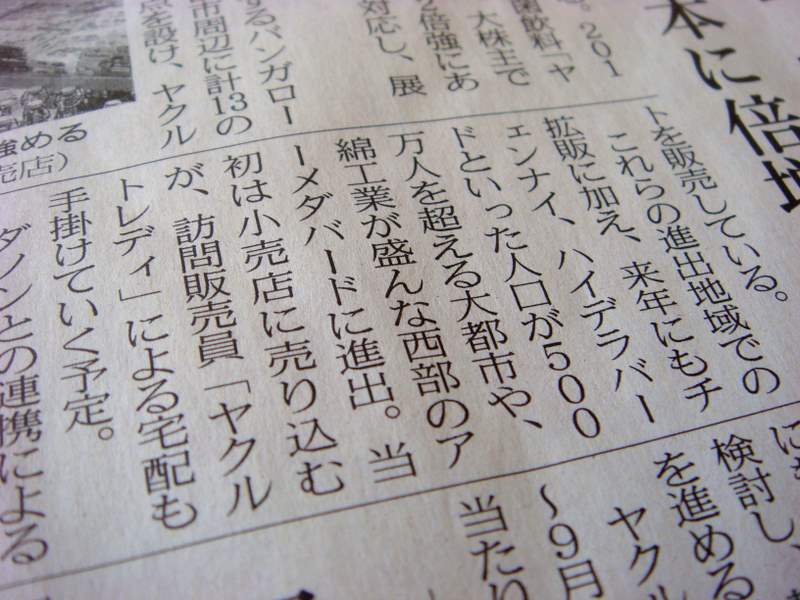 本に倍増
。201
菌飲料「ヤ
大株主で
2倍強にあ
対応し、展
するバンガロー
市周辺に計13の
点を設け、ヤクル
強める
売店）
トを販売している。
これらの進出地域での
拡販に加え、来年にもチ
ェンナイ、ハイデラバー
ドといった人口が500
万人を超える大都市や、
綿工業が盛んな西部のア
ーメダバードに進出。当
初は小売店に売り込む
が、訪問販売員「ヤクル
トレディ」による宅配も
手掛けていく予定。
ダノンとの連携による
検討し、
を進める
ヤクル
～9月
当たり